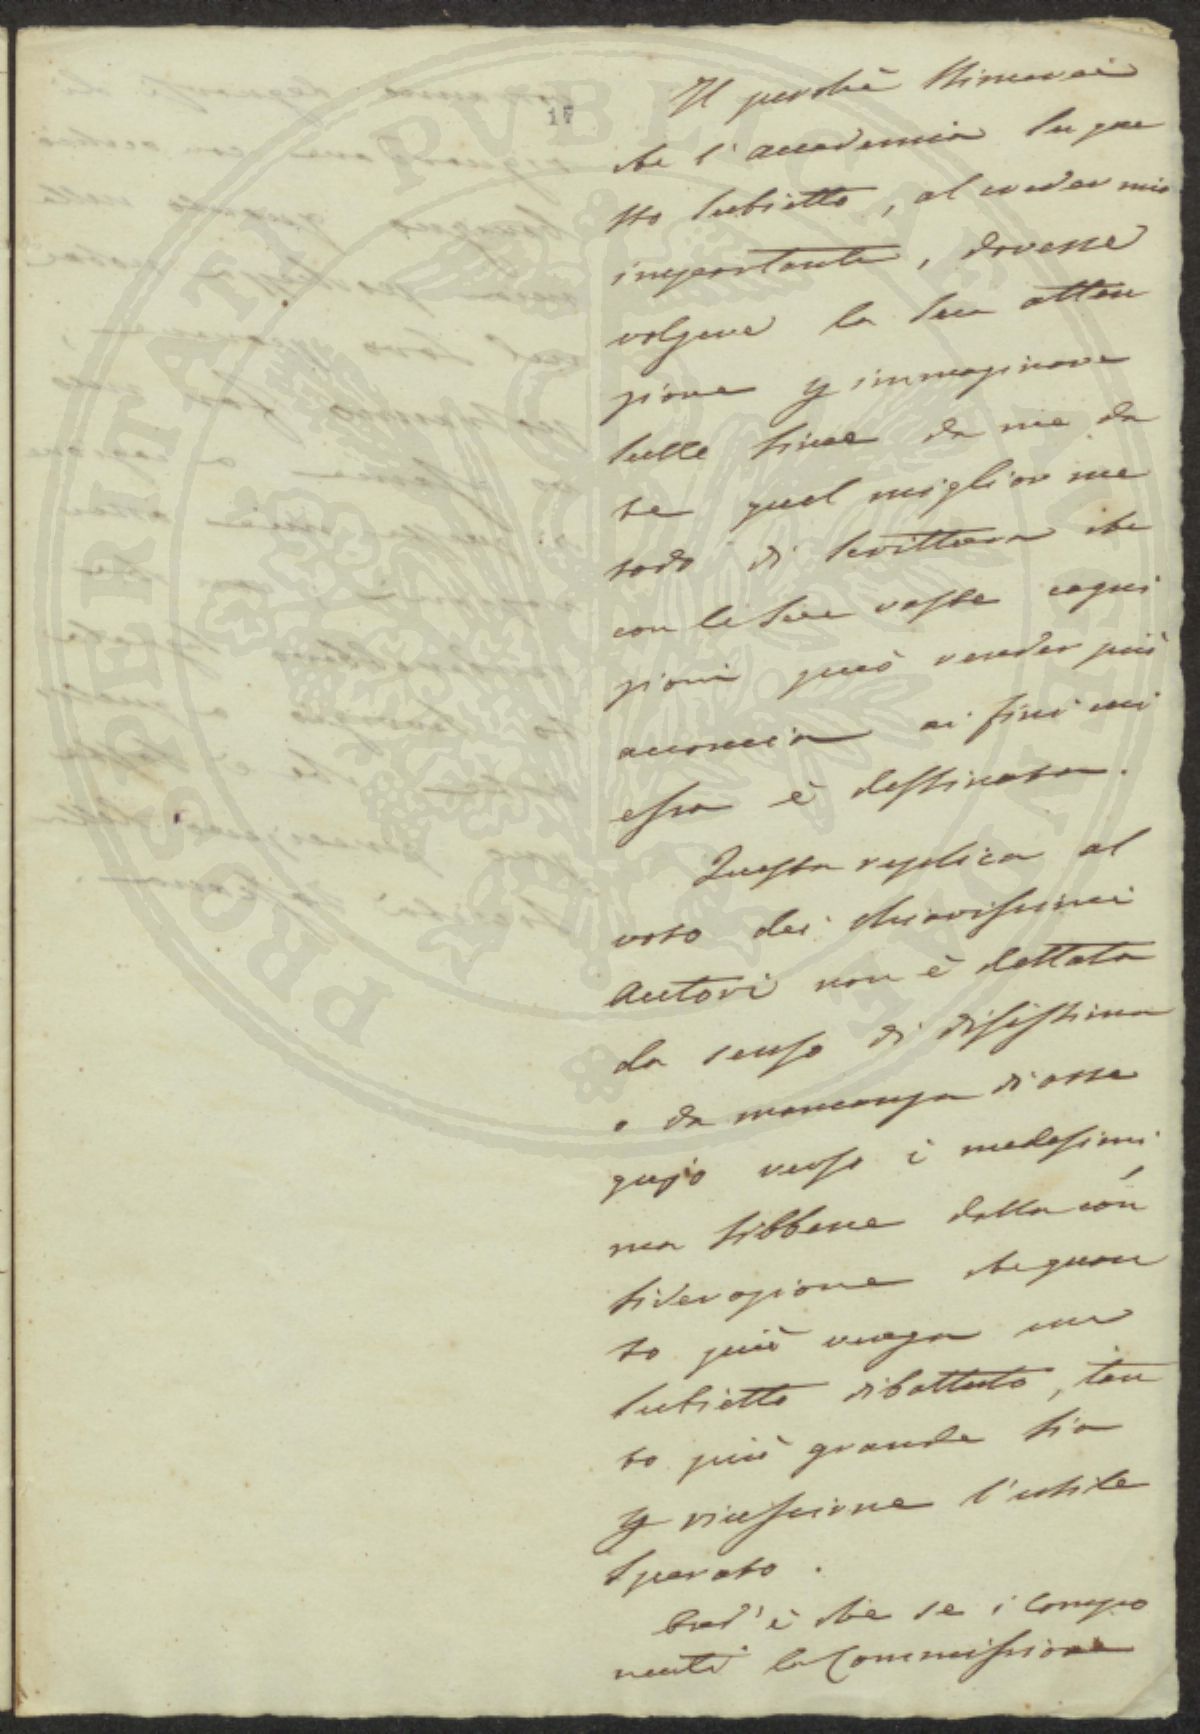 17
Il perchè stimerei
che l'accademia su que
sto subietto, al creder mio
importante, dovesse
volgere la sua atten
zione p immaginare
sulle linee da me da
te quel miglior me
todo di scrittura che
con le sue vaste cogni
zioni può render più
acconcia ai fini cui
essa è destinata.
Questa replica al
voto dei chiarissimi
autori non è dettata
da senso di disistima
o da mancanza di osse
quio verso i medesimi
ma sibbene dalla con
siderazione che quan
to più venga un
subietto dibattuto, tan
to più grande sia
p riuscirne l'utile
sperato.
Ond'è che se i compo
nenti la Commissione
PROSPERITATI PVBLICAE AVGENDAE